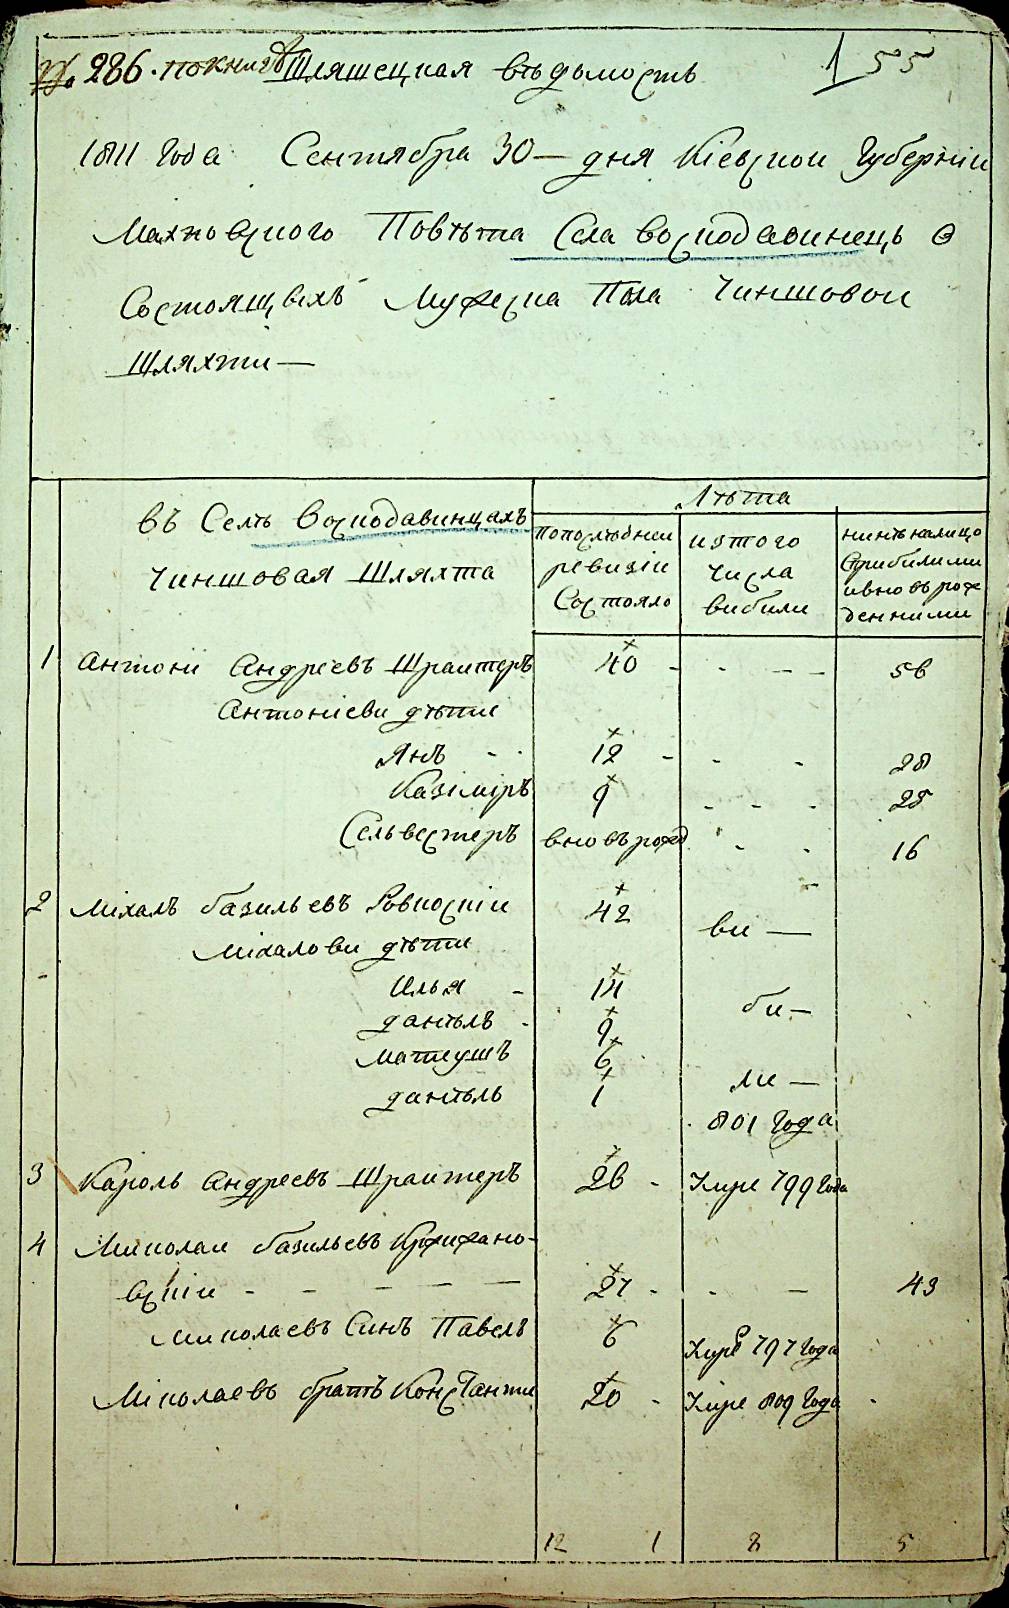 № 286. по книге Шляшецкая вѣдомость 1 55
1811 Года Сентября 30 — дня Кіевскои Губерніи
Махновского Повѣта Села Воскодавинець О
Состоящвхъ Мужеска Пола Чиншовои
Шляхти —
Лѣта
въ Селѣ Воскодавинцахъ
Чиншовая Шляхта
попослѣднеи ревизіи Состояло
изтого числа вибили
нинѣ налицо сприбилими ивновь рож денними
1 Антони Андреевъ Шраитеръ 40 - - — — 56
Антоніеви дѣти
Янъ - - 12 - - - 28
Казіміръ 9 - - - 25
Селвестеръ вновърожд - - 16
2 Міхалъ базильевъ Ровноскіи 42 ви —
Міхалови дѣти
Илья - 14 би —
данѣлъ - 9
матеушъ 6 ли —
данѣлъ 1 801 Года
3 Кароль Андреевъ Шраитеръ 26 - Умре 799 Года
4 Миколаи базильевъ
вскіи - - - — — 27 - - — 43
Миколаевъ Синъ Павелъ 6 Умре 797 Года
Міколаевъ братъ Константи 20 - Умре 809 Года -
12 1 8 5